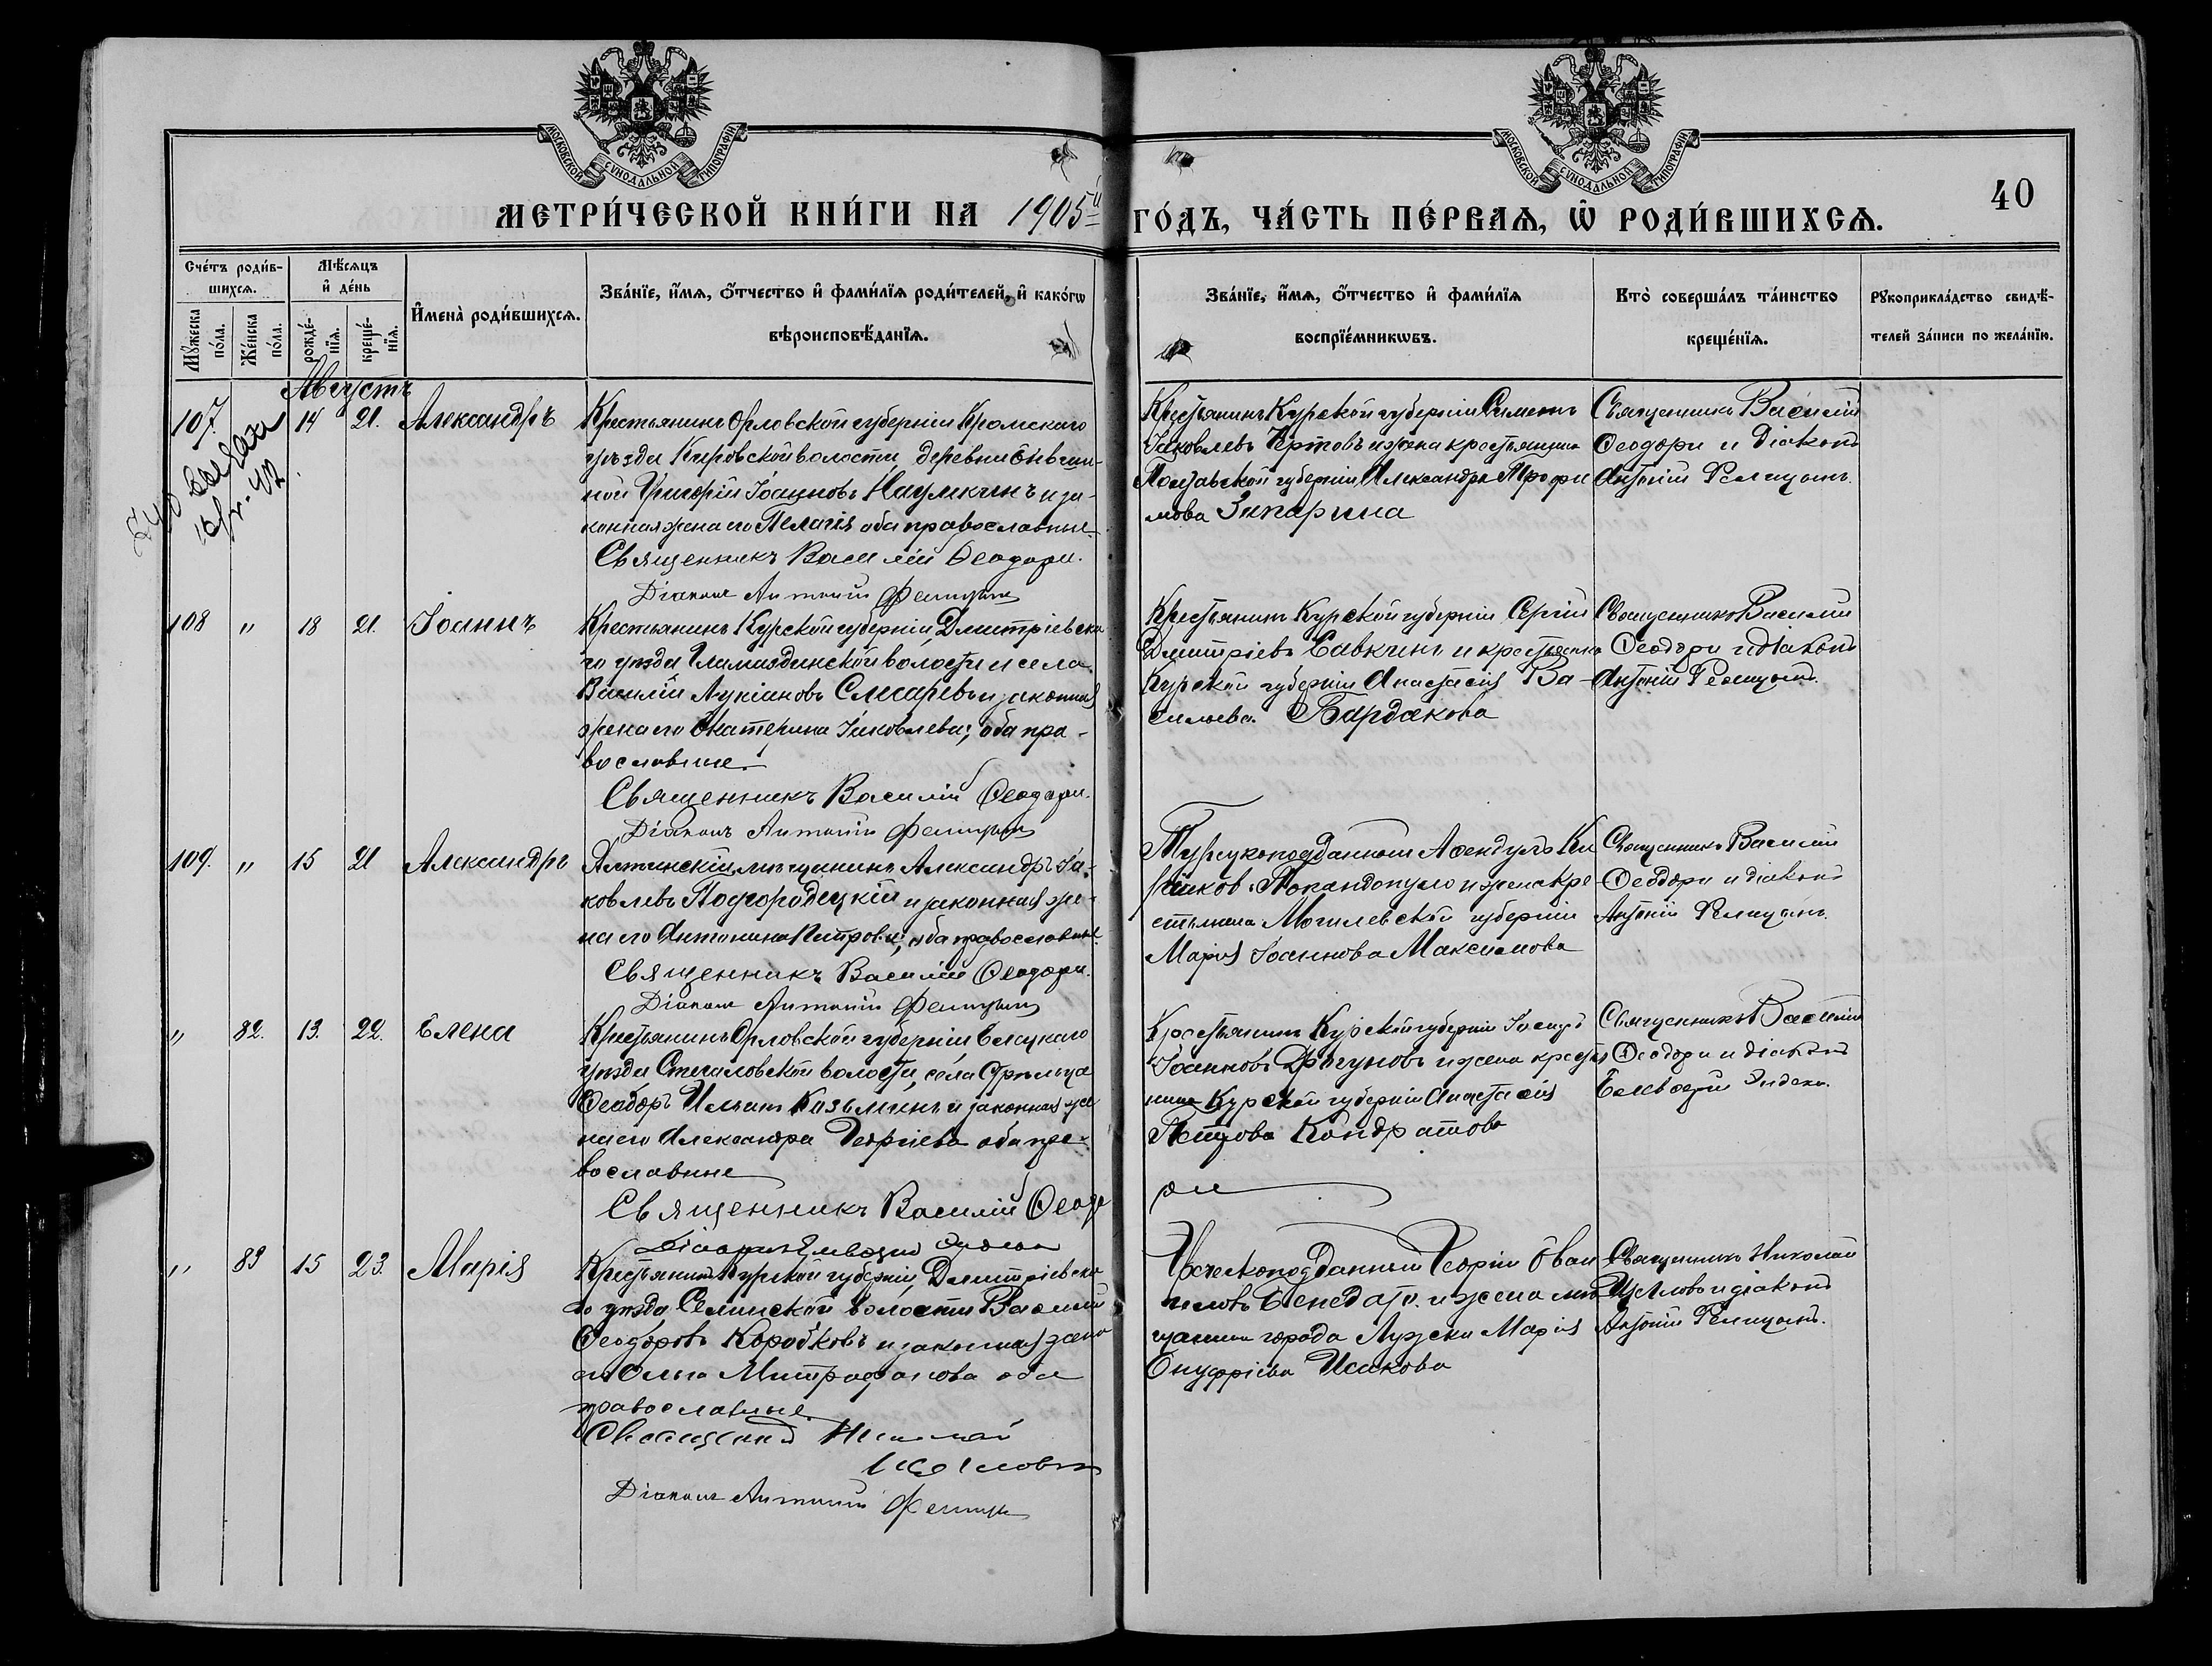 МОСКОВСКОЙ СѴНОДАЛЬНОЙ ТИПОГРАФІИ
МОСКОВСКОЙ СѴНОДАЛЬНОЙ ТИПОГРАФІИ
40
МЕТРИ́ЧЕСКОЙ КНИ́ГИ НА 1905й ГО́ДЪ, ЧА́СТЬ ПЕ́РВАѦ, Ѡ РОДИ́ВШИХСѦ.
Сче́тъ роди́в-
шихсѧ.
Мꙋ́жеска по́ла.
Же́нска по́ла.
Мѣ́сѧцъ
и҆ де́нь
рожде́-
нїѧ.
креще́-
нїѧ.
И҆мена̀ роди́вшихсѧ.
Зва́нїе, и҆́мѧ, ѻ҆́тчество и҆ фами́лїѧ роди́телей, и҆ како́гѡ
вѣроисповѣ́данїѧ.
Зва́нїе, и҆́мѧ, ѻ҆́тчество и҆ фами́лїѧ
воспрїе́мникѡвъ.
Кто̀ соверша́лъ та́инство
креще́нїѧ.
Рꙋкоприкла́дство свидѣ́-
телей за́писи по жела́нїю.
Августъ
107 14 21. Александръ
Крестьянинъ Орловской губерніи Кромскаго
уѣзда Кировской волости, деревни
Григорій Іоанновъ Наумкинъ и за-
конная жена его Пелагія оба православные
Священникъ Василій Ѳеодори.
Діаконъ Антоній Фелицынъ
Крестьянинъ Курской губерніи Симеонъ
Іаковлевъ Чертовъ и жена крестьянина
Полтавской губерніи Александра Трофи
мова Запарина
Священникъ Василій
Ѳеодори и діаконъ
Антоній Фелицынъ.
108 " 18 21. Іоаннъ
Крестьянинъ Курской губерніи, Дмитріевска
го уѣзда волости и села
Василій Лукіановъ Слесаревъ и законная
жена его Екатерина Іаковлева, оба пра-
вославные.
Священникъ Василій Ѳеодори.
Діаконъ Антоній Фелицынъ
Крестьянинъ Курской губерніи Сергій
Димитріевъ Савкинъ и крестьянка
Курской губерніи Анастасія Ва-
сильева Бардакова
Священникъ Василій
Ѳеодори и діаконъ
Антоній Фелицынъ.
109. " 15 21 Александръ
Ялтинскій мѣщанинъ Александръ Іа-
ковлевъ Подгородецкій и законная же-
на его Антонина Петрова, оба православные.
Священникъ Василій Ѳеодори.
Діаконъ Антоній Фелицынъ
Турецкоподданный
и жена кре-
стьянина Могилевской губерніи
Марія Іоаннова Максимова
Священникъ Василій
Ѳеодори и діаконъ
Антоній Фелицынъ.
" 82. 13. 22. Елена
Крестьянинъ Орловской губерніи Елецкаго
уѣзда Стегаловской волости, села Стрѣльца
Ѳеодоръ Казьминъ и законная же
на его Александра Георгіева оба пра-
вославные
Священникъ Василій Ѳеодо
ри
Крестьянинъ Курской губерніи Іосифъ
Іоанновъ и жена крестья
нина Курской губерніи Анастасія
Петрова Кондратова
Священникъ Василій
Ѳеодори и діаконъ
" 83 15 23. Марія
Крестьянинъ Курской губерніи, Дмитріевска
го уѣзда волости Василій
Ѳеодоровъ Коробковъ и законная жена
его Ольга Митрофанова оба
православные.
Священникъ Николай
Діаконъ Антоній Фелицынъ
Греческоподданный Георгій
и жена мѣ
щанина города Марія
Онуфріева Исакова
Священникъ Николай
и діаконъ
Антоній Фелицынъ.